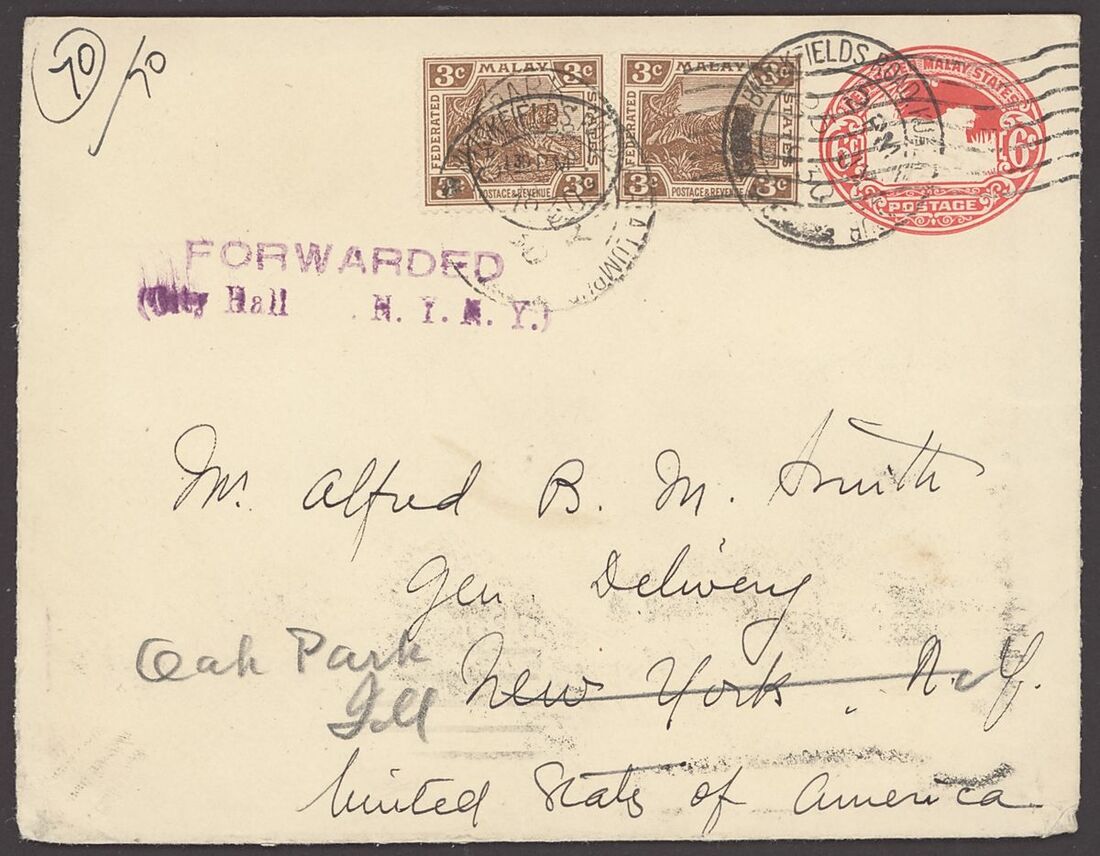 70 / 70
3c MALAY 3c
FEDERATED STATES
POSTAGE & REVENUE
3c MALAY 3c
FEDERATED STATES
3c POSTAGE & REVENUE 3c
BRICKFIELDS ROAD
BRICKFIELDS ROAD
MALAY STATES
6c 6c
POSTAGE
FORWARDED
(City Hall N. Y. N. Y.)
Mr. Alfred B. M. Smith
Gen Delivery
Oak Park
New York, N. Y.
Ill
United States of America